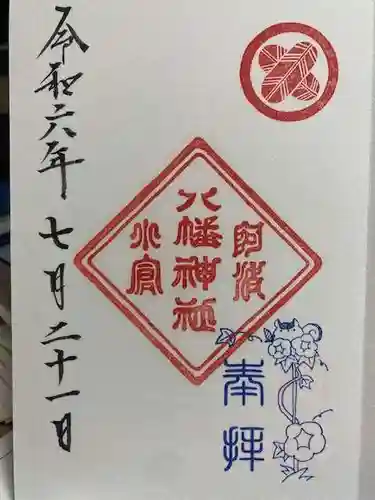 令和六年七月二十一日
阿波
八幡神社
小宮
奉拝